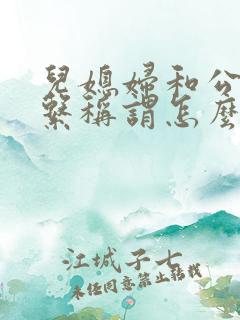 兒媳婦和公
繫稱謂怎麼
江城子七
未任同意禁止轉載